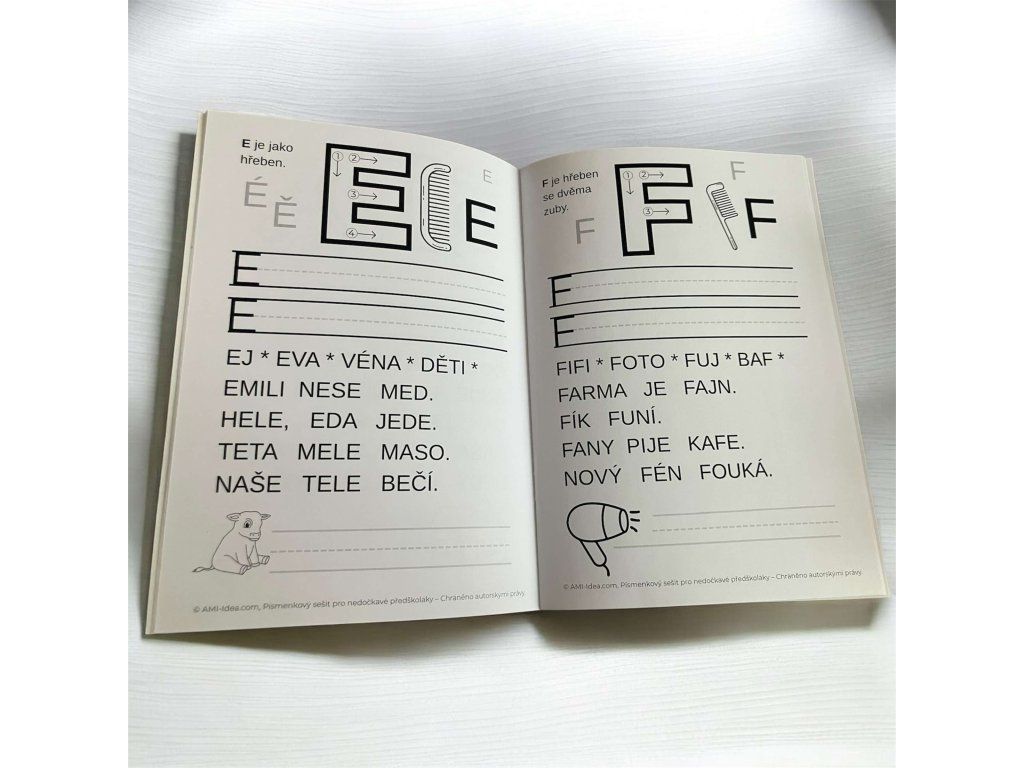 E je jako
hřeben.
É
Ě
E
1 2
3
4
E
E
E
E
EJ * EVA * VÉNA * DĚTI *
EMILI NESE MED.
HELE, EDA JEDE.
TETA MELE MASO.
NAŠE TELE BEČÍ.
© AMI-Idea.com, Písmenkový sešit pro nedočkavé předškoláky – Chráněno autorskými právy.
F je hřeben
se dvěma
zuby.
F
F
1 2
3
F
F
F
F
FIFI * FOTO * FUJ * BAF *
FARMA JE FAJN.
FÍK FUNÍ.
FANY PIJE KAFE.
NOVÝ FÉN FOUKÁ.
© AMI-Idea.com, Písmenkový sešit pro nedočkavé předškoláky – Chráněno autorskými právy.